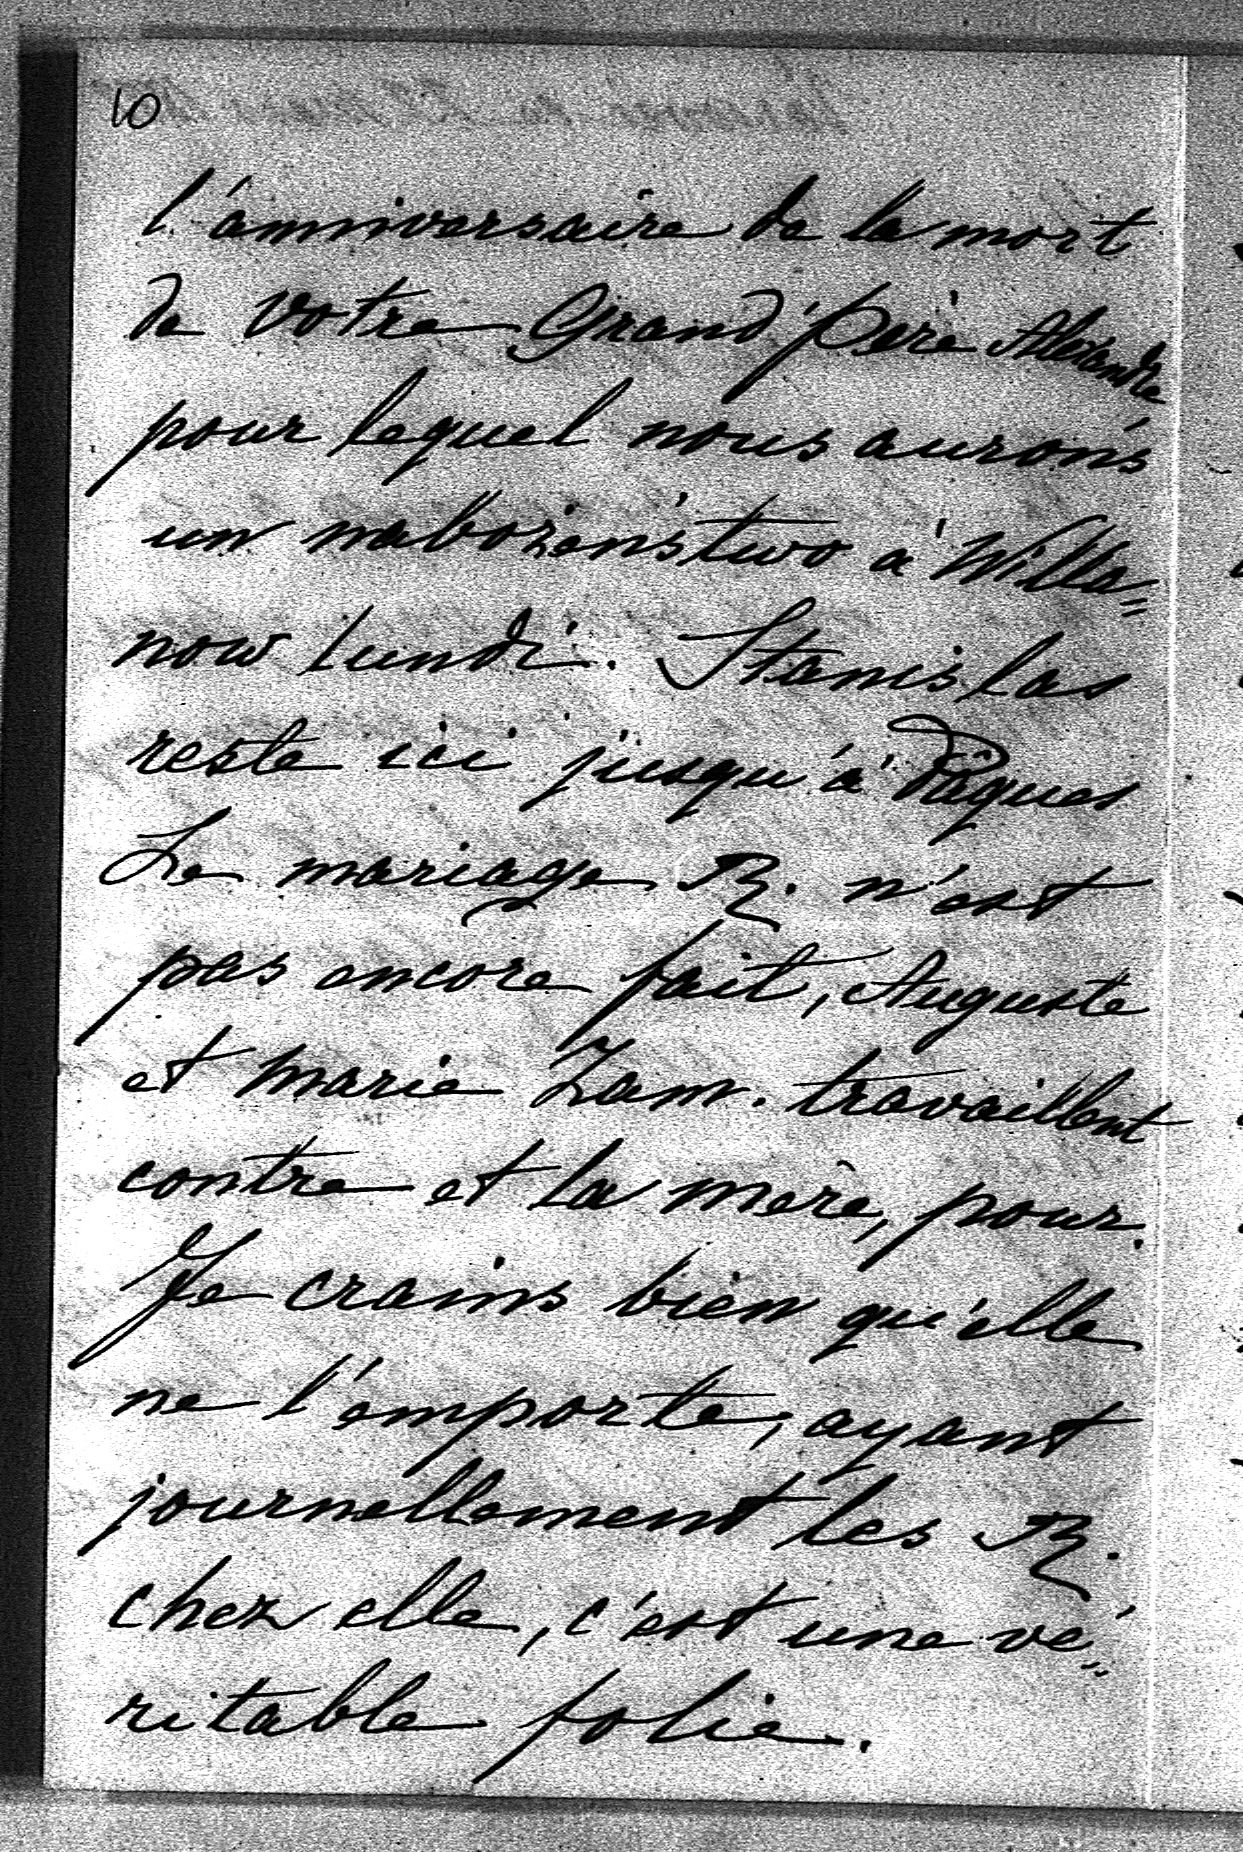 10
l'anniversaire de la mort
de votre Grand'père Alexandre
pour lequel nous aurons
un nabożeństwo à Willa=
now lundi. Stanislas
reste ici jusqu'à Pâques
Le mariage R. n'est
pas encore fait, Auguste
et Marie Zam. travaillent
contre et la mère, pour.
Je crains bien qu'elle
ne l'emporte, ayant
journellement les R.
chez elle, c'est une vé=
ritable folie.